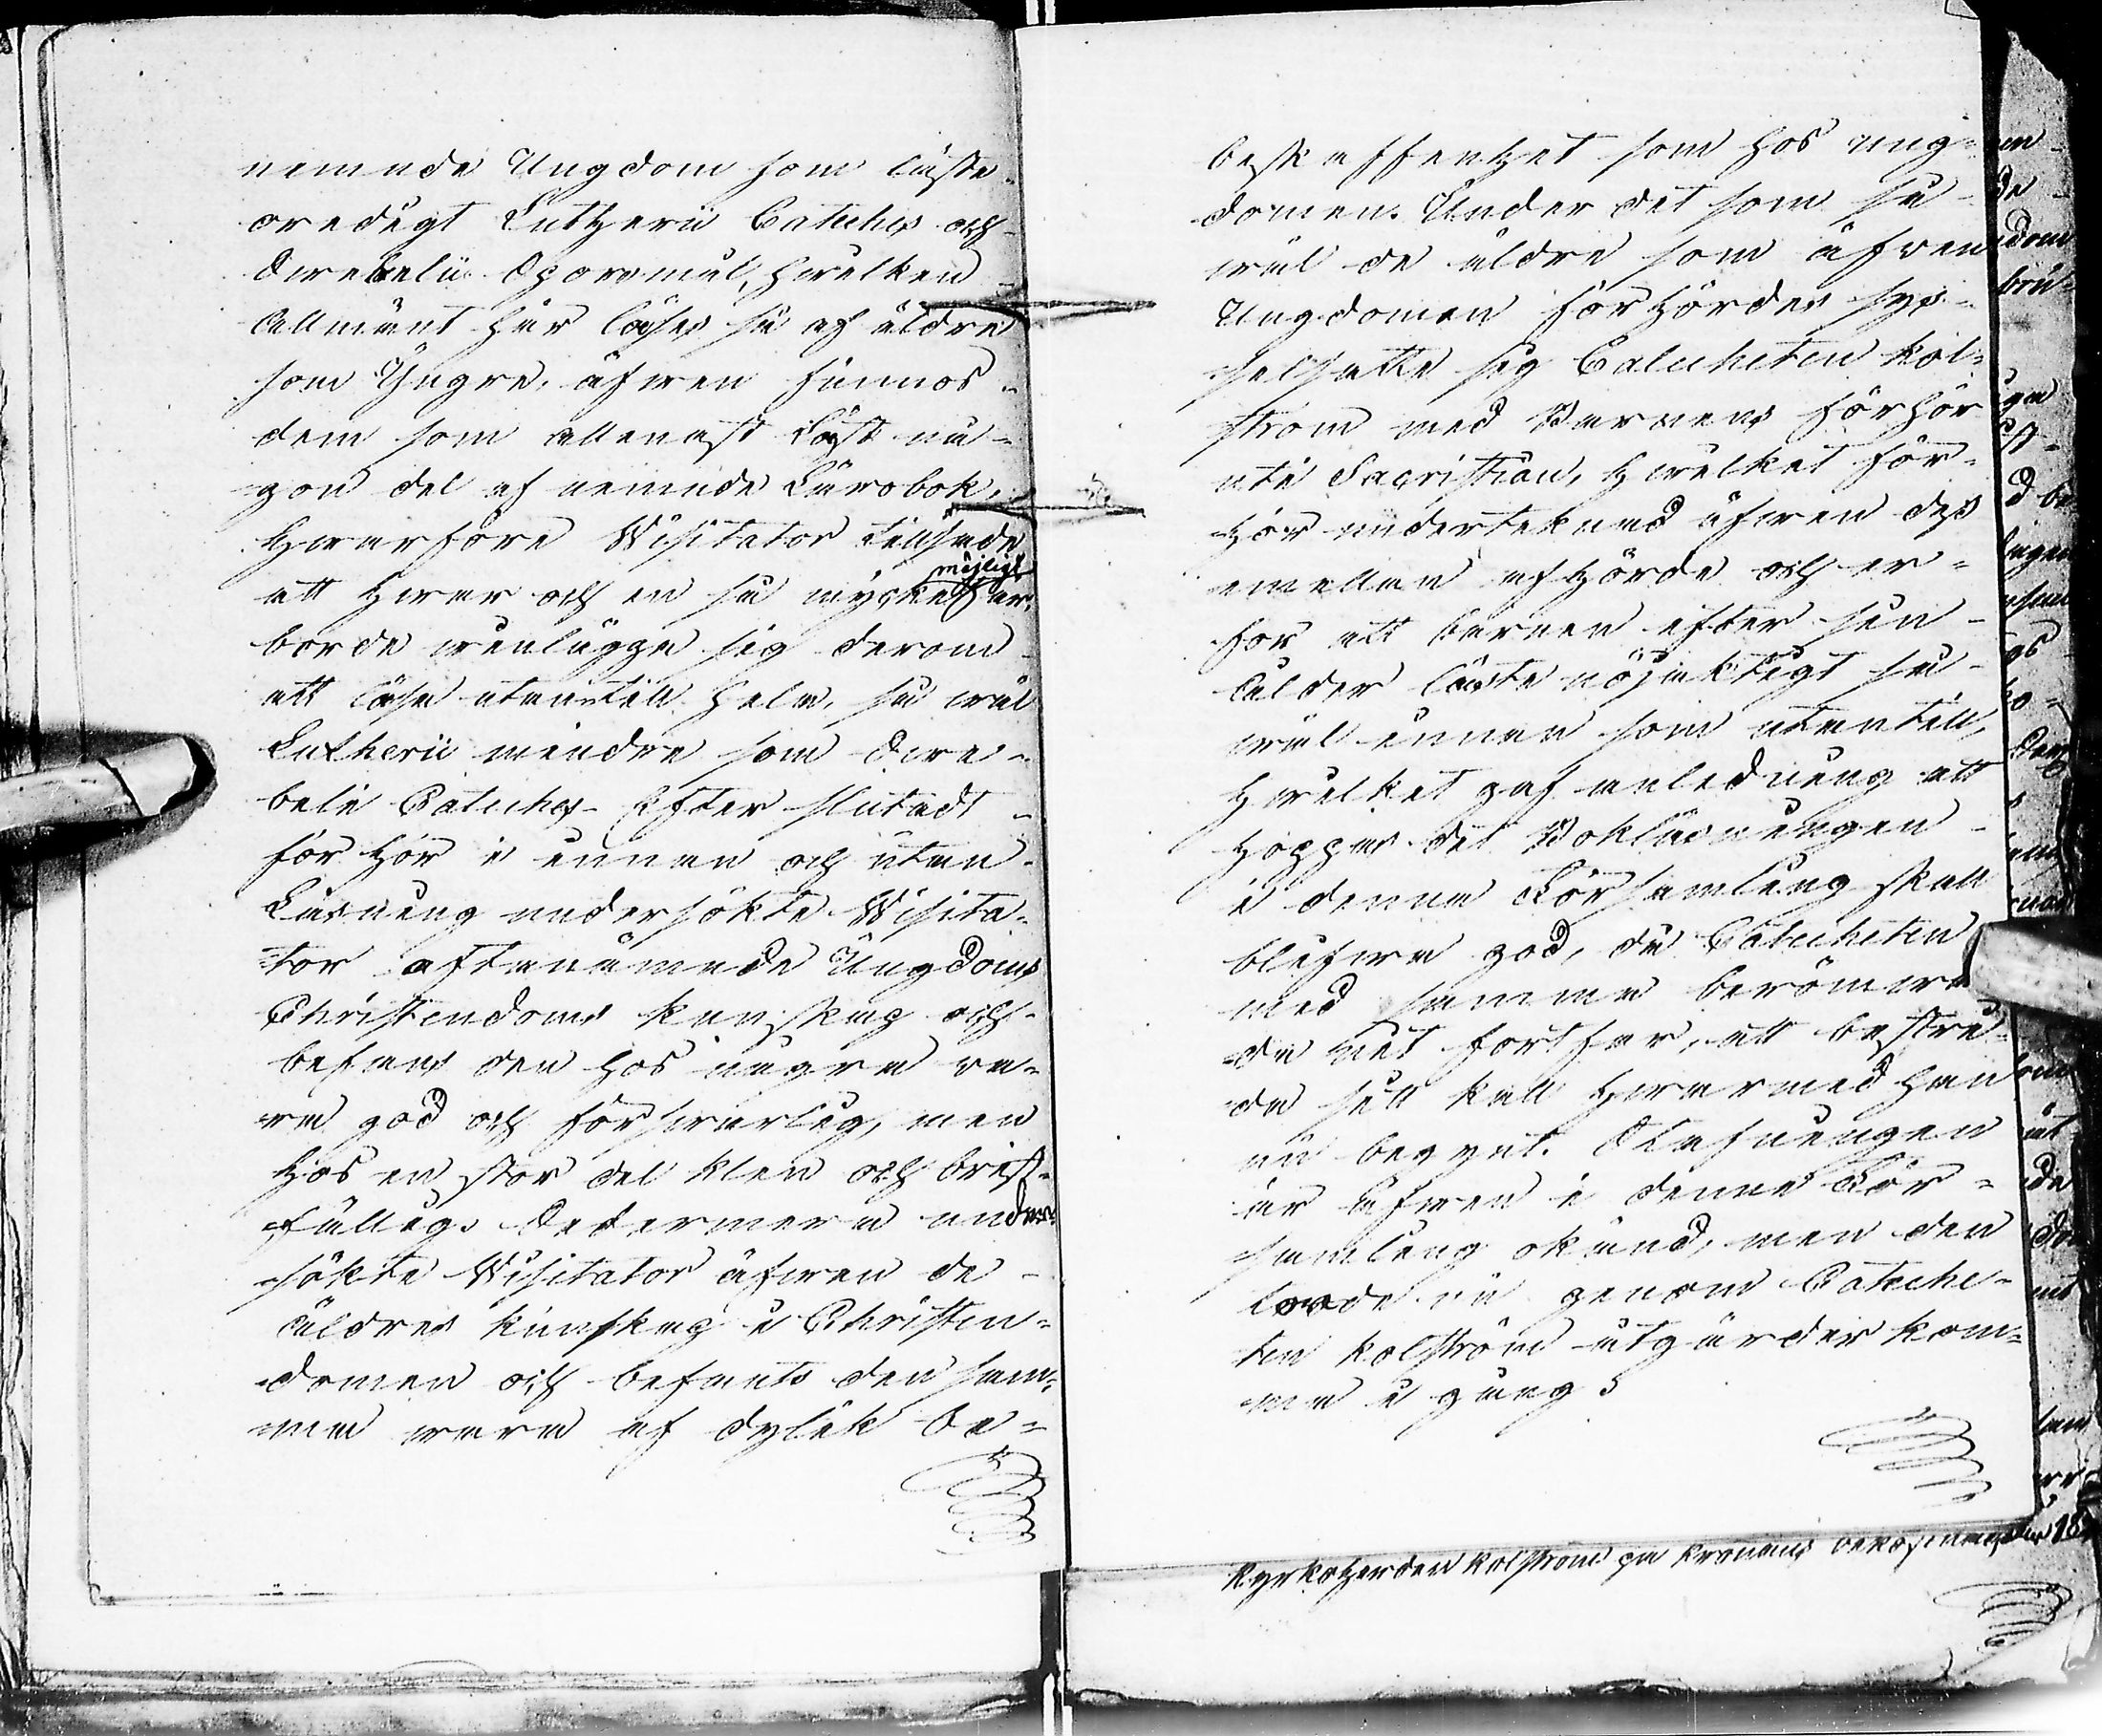 nemnde Ungdom som läste
oredigt Lutherii Catches och
Svebelii Spörsmål, hwilken
Allmänt här läses så af äldre
som Yngre. äfwen finnos
dem som allenast Läst nå-
gon del af nemnde Lärobok,
Hwarföre Wisitator tillsade
att hwar och en så mycket möjligt war,
borde winlägga sig derom
att läsa utantill hela, så wäl
Lutherii mindre som Swe-
belii Catches. Efter slutadt
förhör i innan och utan
Läsning undersökte Wisita-
tor oftanämnde Ungdoms
Christendoms kunskap och
befans den hos några va-
ra god och förswarlig, men
hos en stor del klen och brist-
fällig. Dessermera under
sökte Wisitator äfwen de
äldres kunskap i Christen-
domen och befants den sam-
ma wara af dylik be-
beskaffenhet som hos ung-
domen. Under det som så
wäl de äldre som äfwen
Ungdomen förhördes sys-
selsatte sig Catecheten Kol-
ström med Barnens förhör
uti Sacristian, hwilket för-
hör underteknad äfwen dess
emellan afhörde och er-
for att barnen efter sin
ålder läste nöjaktigt så
wäl innan som utantill,
hwilket gaf anledning att
hoppas det Bokläsningen
i denna Församling skall
blifwa god, då Catecheten
med samma berömwär
da nit fortfar, att bestri-
da sitt kall hwarmed han
nu begynt. Skrifningen
är äfwen i denna För-
samling okänd, men den
torde nu genom Cateche-
ten Kolström åtgärder kom-
ma i gång.
Kyrkoherden Kolström på Kronans